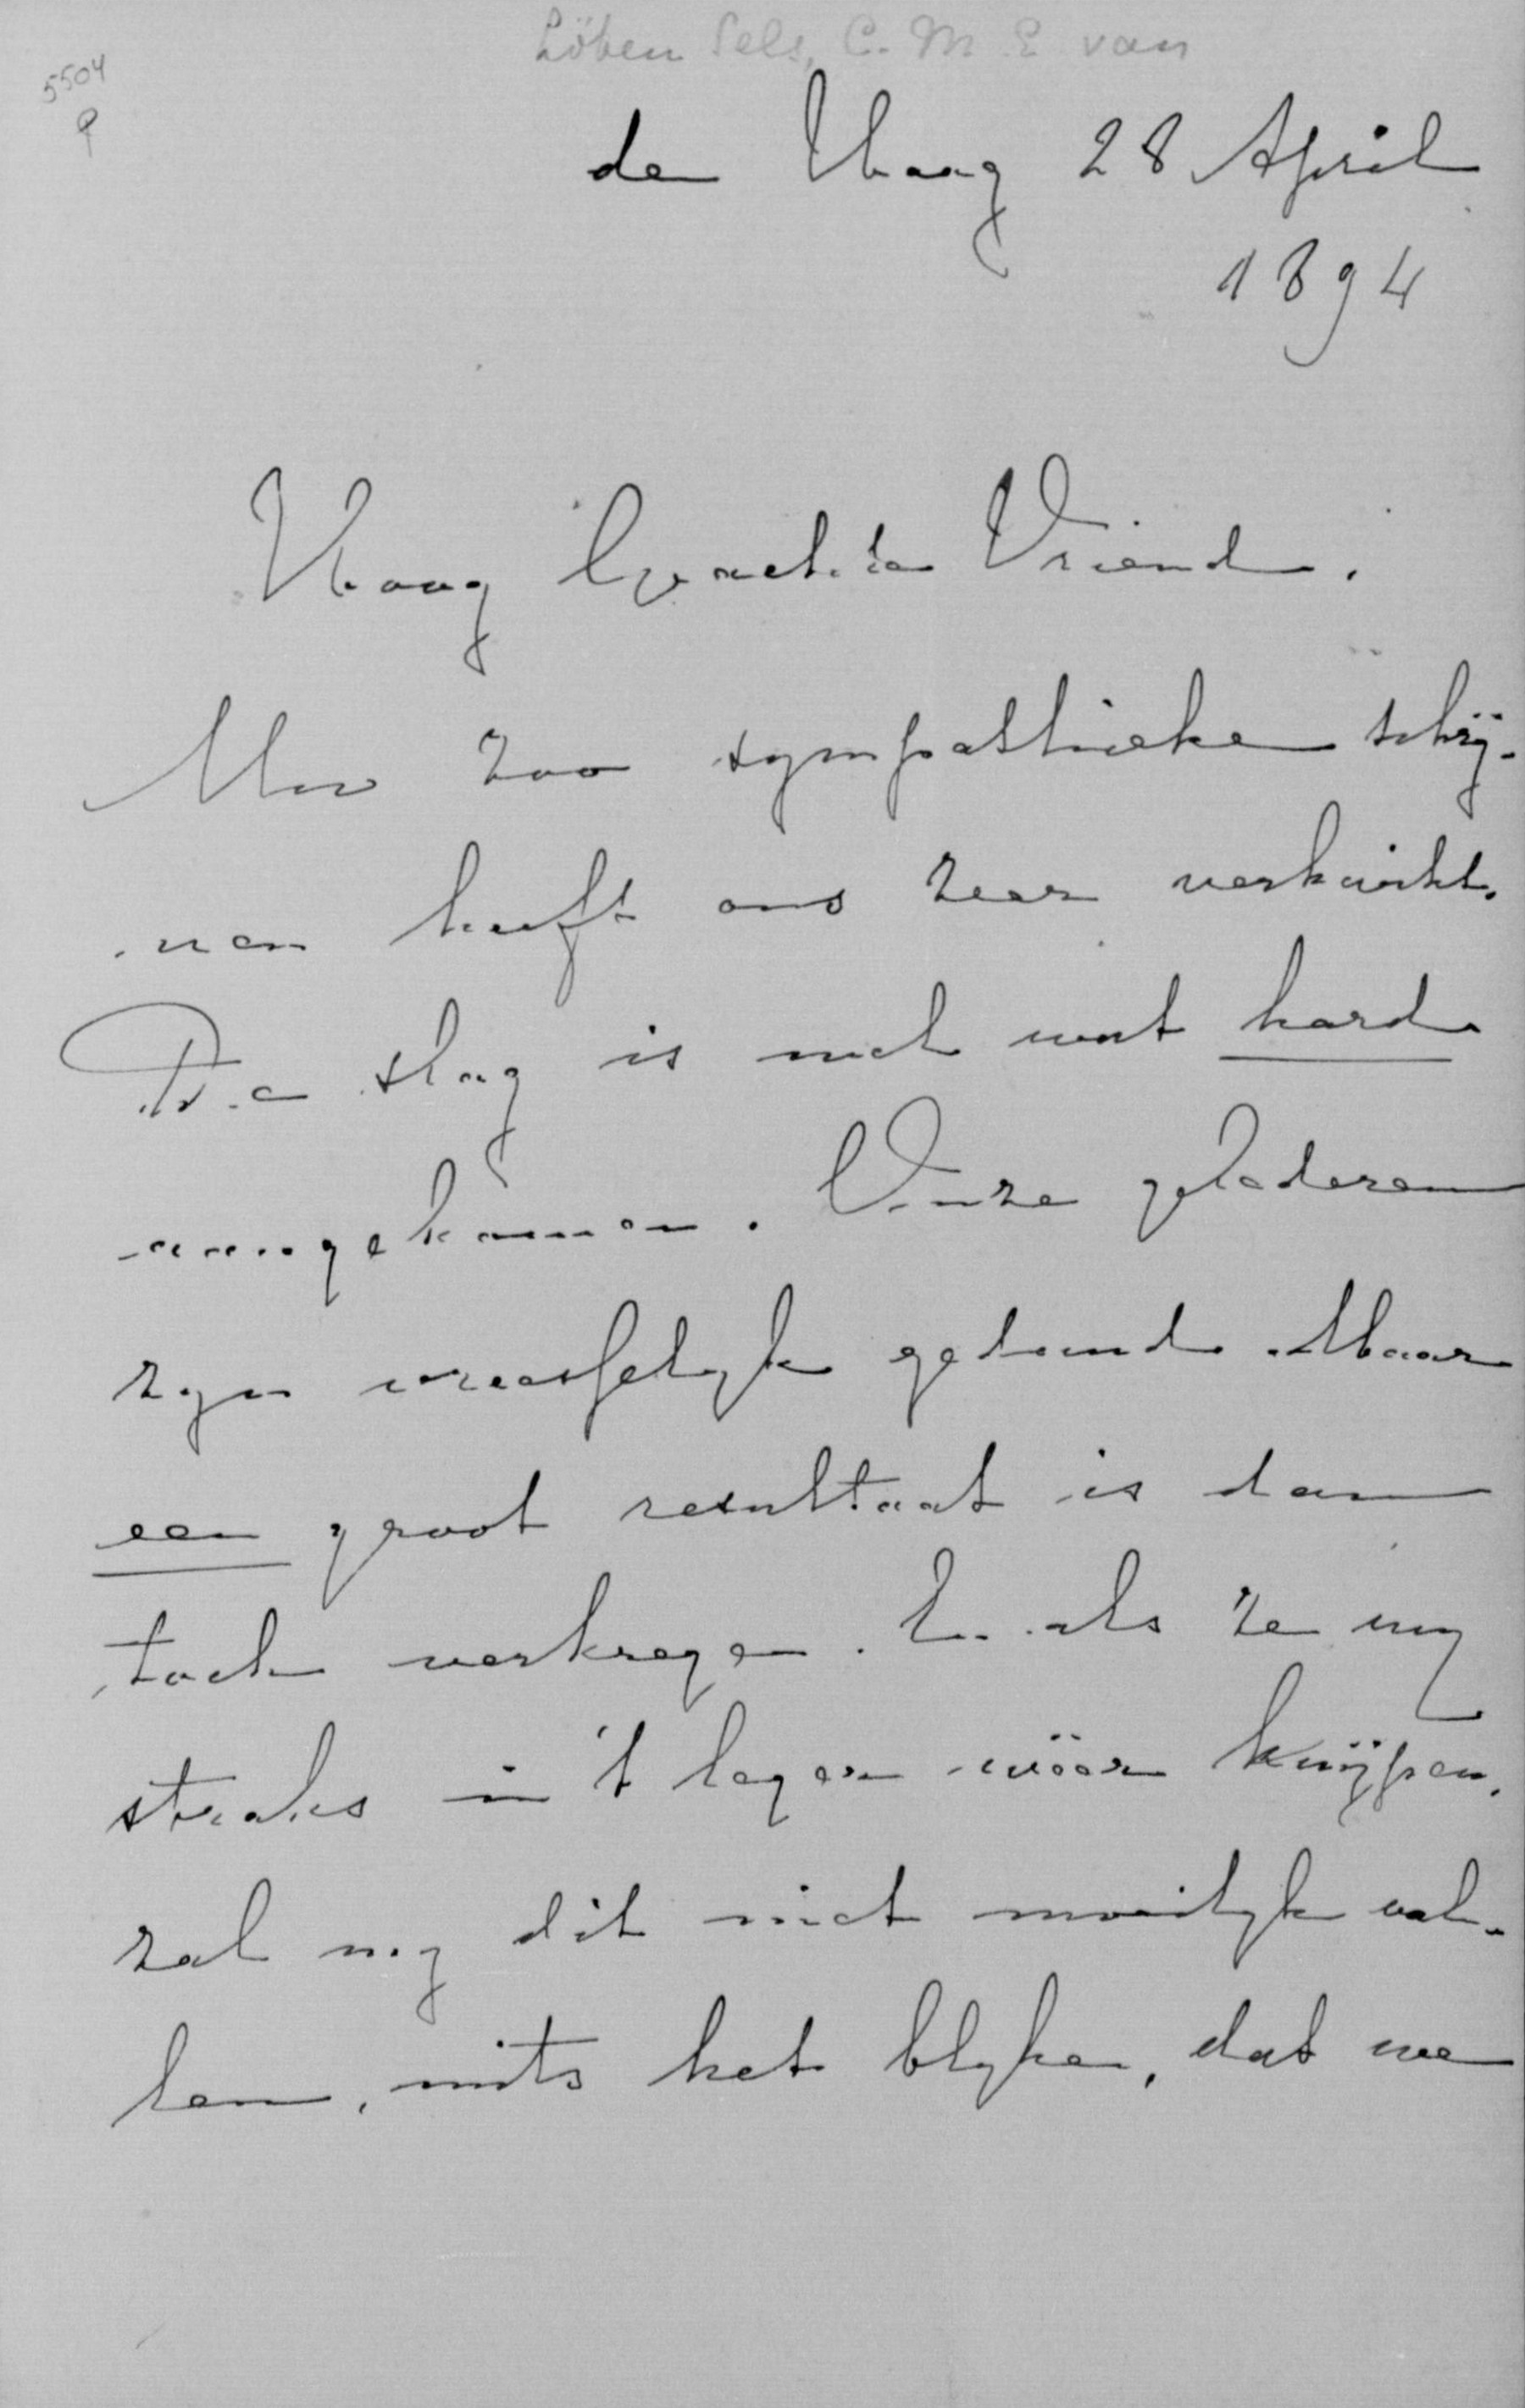 Löben Sels, C. M. E van
5504
de Haag 28 April
1894
Hoog Geachte Vriend.
Uw zoo sympathieke schrij-
ven heeft ons zeer verkwikt.
De slag is met wat hard
aangekomen. Onze gelederen
zyn vreeselyk gedund. Maar
een groot resultaat is dan
toch verkregen. En als ze my
straks in 't leger weer knijpen,
zal my dit niet moeilyk val-
len, mits het blyke, dat we